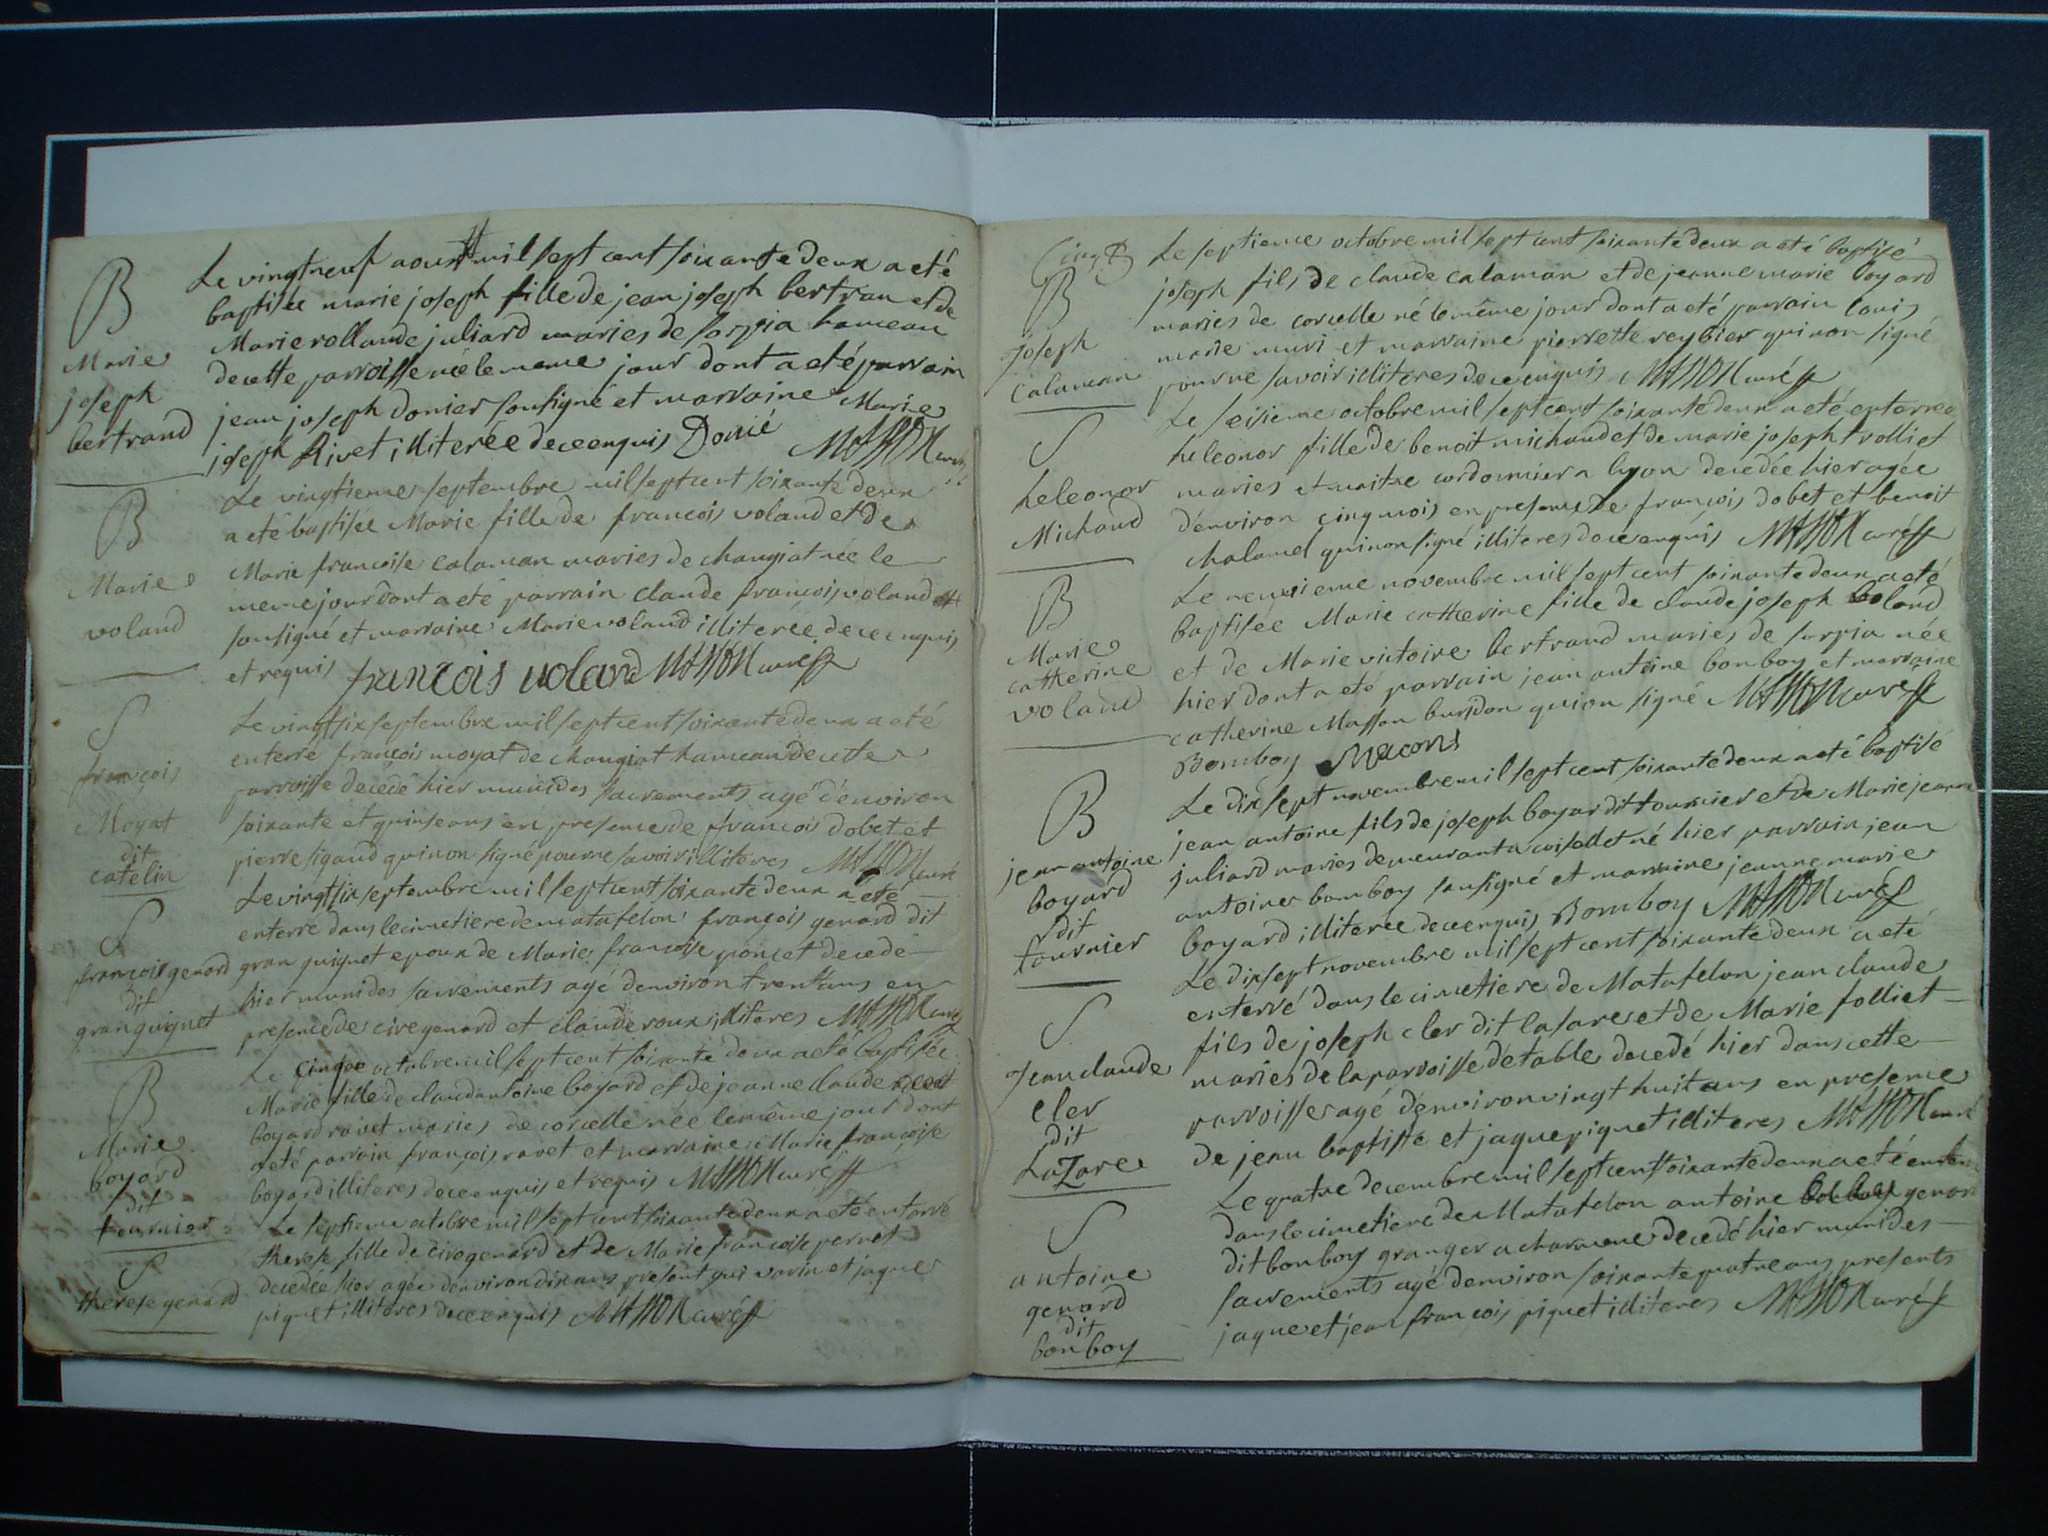 B
Marie
joseph
bertrand
Le vingtneuf aoust mil sept cent soixante deux a eté
baptisée marie joseph fille de jean joseph bertran et de
Marie rollande juliard maries de sorpia hameau
de cette parroisse née le meme jour dont a eté parrain
jean joseph donier sousigné et marraine Marie
joseph Rivet illiterée de ce enquis Donié MASSON curé
B
Marie
voland
Le vingtieme septembre mil sept cent soixante deux
a eté baptisée Marie fille de francois voland et de
Marie francoise calaman maries de changiat née le
meme jour dont a eté parrain claude françois voland
sousigné et marraine Marie voland illiterée de ce enquis
et requis francois voland MASSON curé
S
françois
Moyat
dit
catelin
Le vingt six septembre mil sept cent soixante deux a eté
enterré françois moyat de changiat hameau de cette
parroisse decedé hier muni des sacrements agé d'environ
soixante et quinse ans en presence de francois dobet et
pierre ligaud qui non signé pour ne savoir illiteres MASSON curé
S
françois genard
dit
gran guignet
Le vingt six septembre mil sept cent soixante deux a eté
enterré dans le cimetiere de matafelon françois genard dit
gran guignet epoux de Marie francoise poncet decedé
hier muni des sacrements agé denviron trente ans en
presence de cire genard et claude roux illiteres MASSON curé
B
Marie
boyard
dit
tournier
Le cinque octobre mil sept cent soixante deux a eté baptisée
Marie fille de claud antoine boyard et de jeanne claude
boyard ravet maries de corcelle née le même jour dont
a eté parrain françois ravet et marraine Marie françoise
boyard illiteres de ce enquis et requis MASSON curé
S
therese genard
Le septieme octobre mil sept cent soixante deux a eté enterré
therese fille de cire genard et de Marie francoise pernet
decedée hier agée denviron dix ans present gui varin et jaque
piquet illiteres de ce enquis MASSON curé
B
joseph
Calaman
Le septieme octobre mil sept cent soixante deux a eté baptisé
joseph fils de claude calaman et de jeanne marie boyard
maries de corcelle né le même jour dont a eté parrain louis
marie muri et marraine pierrette reybier qui non signé
pour ne savoir illiteres de ce enquis MASSON curé
S
heleonor
Michaud
Le seisieme octobre mil sept cent soixante deux a eté enterrée
heleonor fille de benoit michaud et de marie joseph trolliet
maries et maitre cordonnier a lyon decedée hier agée
d'environ cinq mois en presence de françois dobet et benoit
chaland qui non signé illiteres de ce enquis MASSON curé
B
Marie
catherine
voland
Le neuvieme novembre mil sept cent soixante deux a eté
baptisée Marie catherine fille de claude joseph voland
et de Marie victoire bertrand maries de sorpia née
hier dont a eté parrain jean antoine bonboy et marraine
catherine Masson burdon qui on signé MASSON curé
Bomboy Macons
B
jean antoine
boyard
dit
tournier
Le dix sept novembre mil sept cent soixante deux a eté baptisé
jean antoine fils de joseph boyard dit tournier et de Marie jeanne
juliard maries demeurant a coiselet né hier parrain jean
antoine bomboy sousigné et marraine jeanne marie
boyard illiterée de ce enquis Bomboy MASSON curé
S
Jean claude
Cler
dit
Lazare
Le dix sept novembre mil sept cent soixante deux a eté
enterré dans le cimetiere de Matafelon jean claude
fils de joseph cler dit lasare et de Marie folliet
maries de la parroisse d'étable decedé hier dans cette
parroisse agé d'environ vingt huit ans en presence
de jean baptiste et jaque piquet illiteres MASSON curé
S
antoine
genard
dit
bonboy
Le quatre decembre mil sept cent soixante deux a eté enterré
dans le cimetiere de Matafelon antoine genard
dit bonboy granger a charmene decedé hier muni des
sacrements agé denviron soixante quatre ans presents
jaque et jean françois piquet illiteres MASSON curé